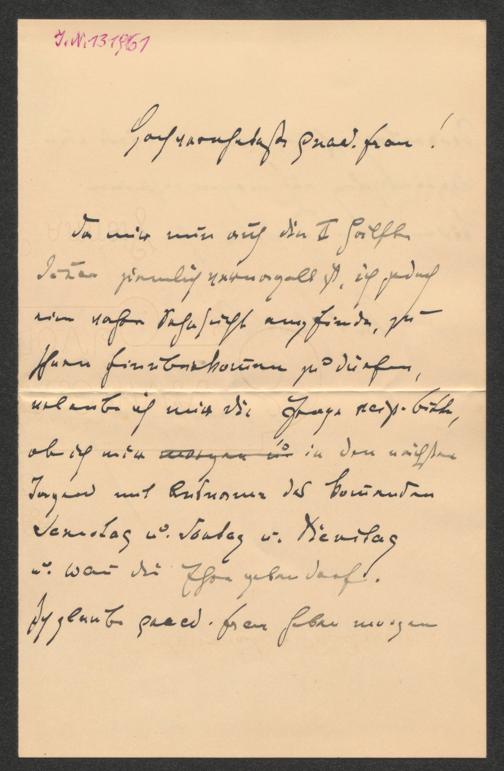 J.N. 131961
Hochverehrteste gnäd. Frau!
Da mir nun auch die II Hälfte
ziemlich ist, ich jedoch
eine wahre Sehnsucht empfinde, zu
Ihnen hinüberkommen zu dürfen,
erlaube ich mir die Frage resp. Bitte,
ob ich mir morgen o in den nächsten
Tagen mit Ausnahme des kommenden
Samstag u. Sonntag u. Dienstag
u. wann die Ehre geben darf.
Ich glaube gnäd. Frau haben morgen